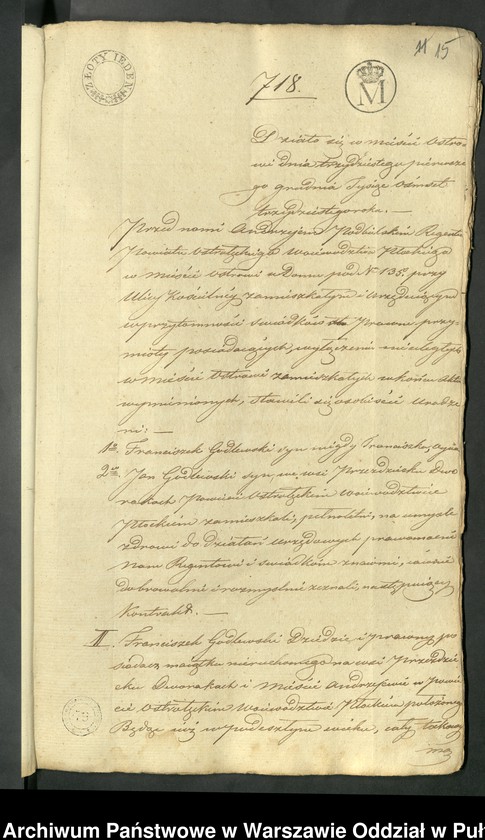 11 15
ZŁOTY JEDEN
M
718.
Działo się w mieście Ostro-
wi dnia trzydziestego pierwsze-
go grudnia Tysiąc Ośmset
trzydziestego roku. —
Przed nami Andrzejem Podbielskim Regentem
Powiatu Ostrołęckiego Województwa Płockiego
w mieście Ostrowi w Domu pod No 135. przy
Ulicy Kościelnéy zamieszkałym i urzęduiącym
w przytomności świadków Prawne przy-
mioty posiadaiących, wyłączeniu nieuległych
w mieście Ostrowi zamieszkałych w końcu Aktu
wymienionych, stawili się osobiście Urodze-
ni: —
1o. Franciszek Godlewski syn niegdy Franciszka, oyciec
2o. Jan Godlewski syn, we wsi Przezdziecku Dwo-
rakach Powiecie Ostrołęckim Województwie
Płockim zamieszkali, pełnoletni, na umyśle
zdrowi do działań urzędowych prawomocni
Nam Regentowi i świadkom znaiomi, i zeznali
dobrowolnie i rozmyślnie następuiący
Kontrakt. —
II. Franciszek Godlewski Dziedzic i prawony po-
siadacz maiątku nieruchomego na wsi Przezdzie-
cku Dworakach i Mieście Andrzejewie w Powie-
cie Ostrołęckim Województwie Płockim położonego
Będąc iuż w podeszłym wieku, cały
ma
Archiwum Państwowe w Warszawie Oddział w Puł